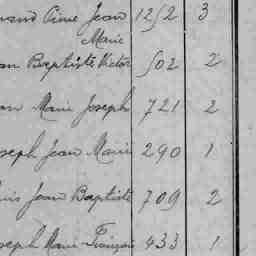 Aimé Jean 1252 3
Marie
Baptiste Victor 502 2
Marie Joseph 721 2
Joseph Jean Marie 290 1
Jean Baptiste 709 2
Joseph Marie François 433 1